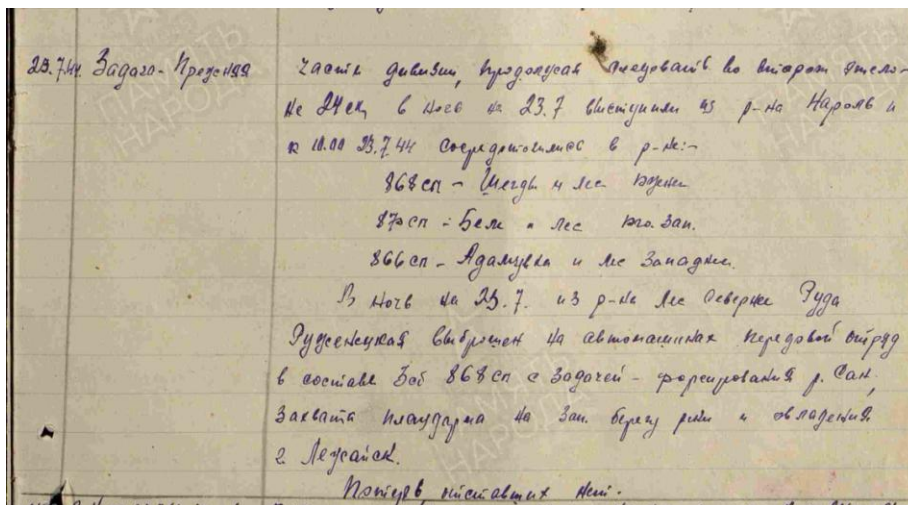 23.7.44. Задача - Прежняя
Части дивизии, продолжая следовать во втором эшело-
не 24ск, в ночь на 23.7 выступили из р-на Нароль и
к 10.00 23.7.44 сосредоточились в р-не:-
868сп - и лес южнее
870сп - и лес юго. зап.
866сп - Адамувка и лес западнее.
В ночь на 23.7. из р-на лес севернее Руда
Руженецкая выброшен на автомашинах передовой отряд
в составе 3сб 868сп с задачей - форсирования р. Сан,
захвата плацдарма на зап. берегу реки и овладения
г. Лежайск.
Потерь, отставших нет.
ПАМЯТЬ
НАРОДА